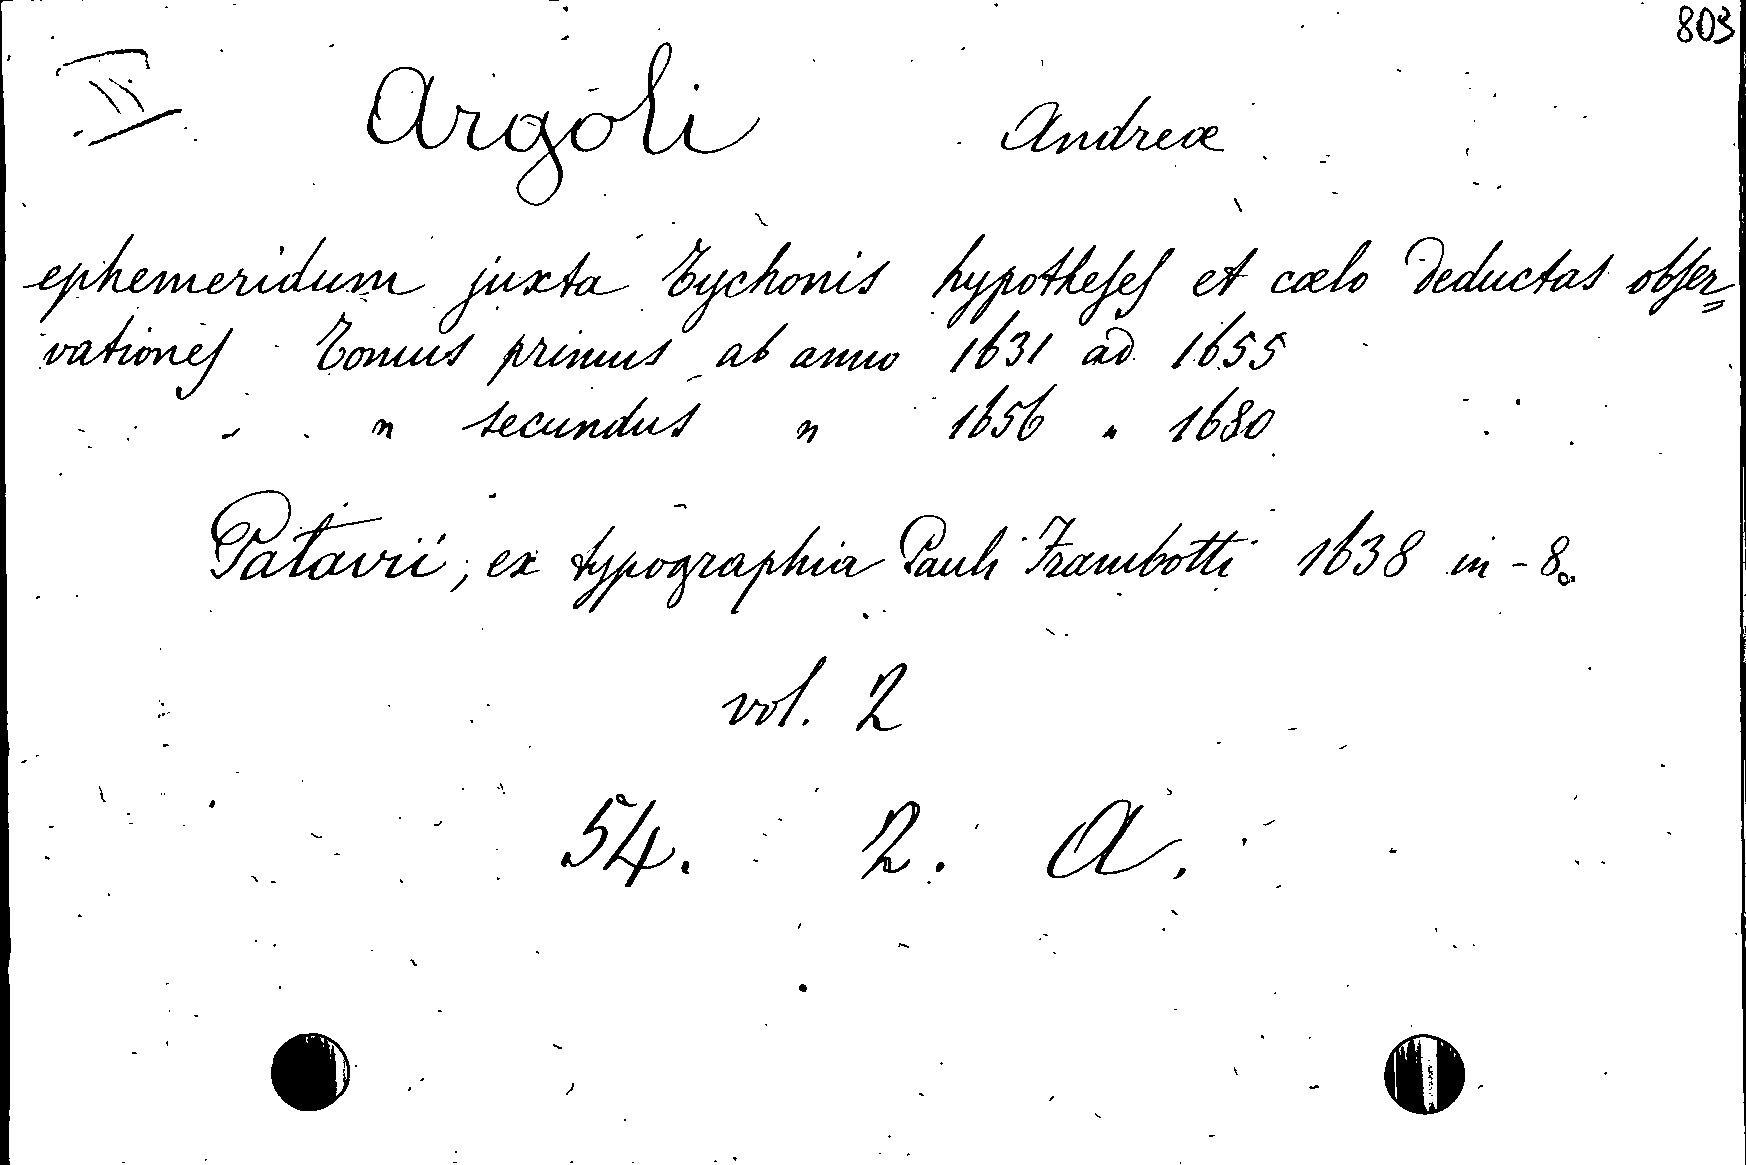 803
II Argoli Andreæ
ephemeridum juxta Tychonis hypotheses et cœlo deductas obser=
vationes Tomus primus ab anno 1631 ad 1655
" secundus " 1656 " 1680
Patavii, ex typographia Pauli Frambotti 1638 in-8o.
vol. 2
54. 2. A.